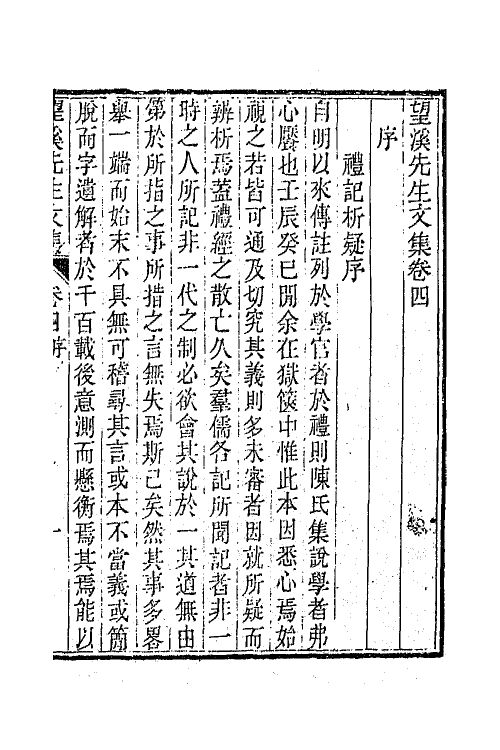 望溪先生文集卷四
序
禮記析疑序
自明以來傳註列於學官者於禮則陳氏集說學者弗
心饜也壬辰癸巳閒余在獄篋中惟此本因悉心焉始
視之若皆可通及切究其義則多未審者因就所疑而
辨析焉蓋禮經之散亡久矣羣儒各記所聞記者非一
時之人所記非一代之制必欲會其說於一其道無由
第於所指之事所措之言無失焉斯已矣然其事多畧
舉一端而始末不具無可稽尋其言或本不當義或簡
脫而字遺解者於千百載後意測而懸衡焉其焉能以
望溪先生文集 卷四 序 一